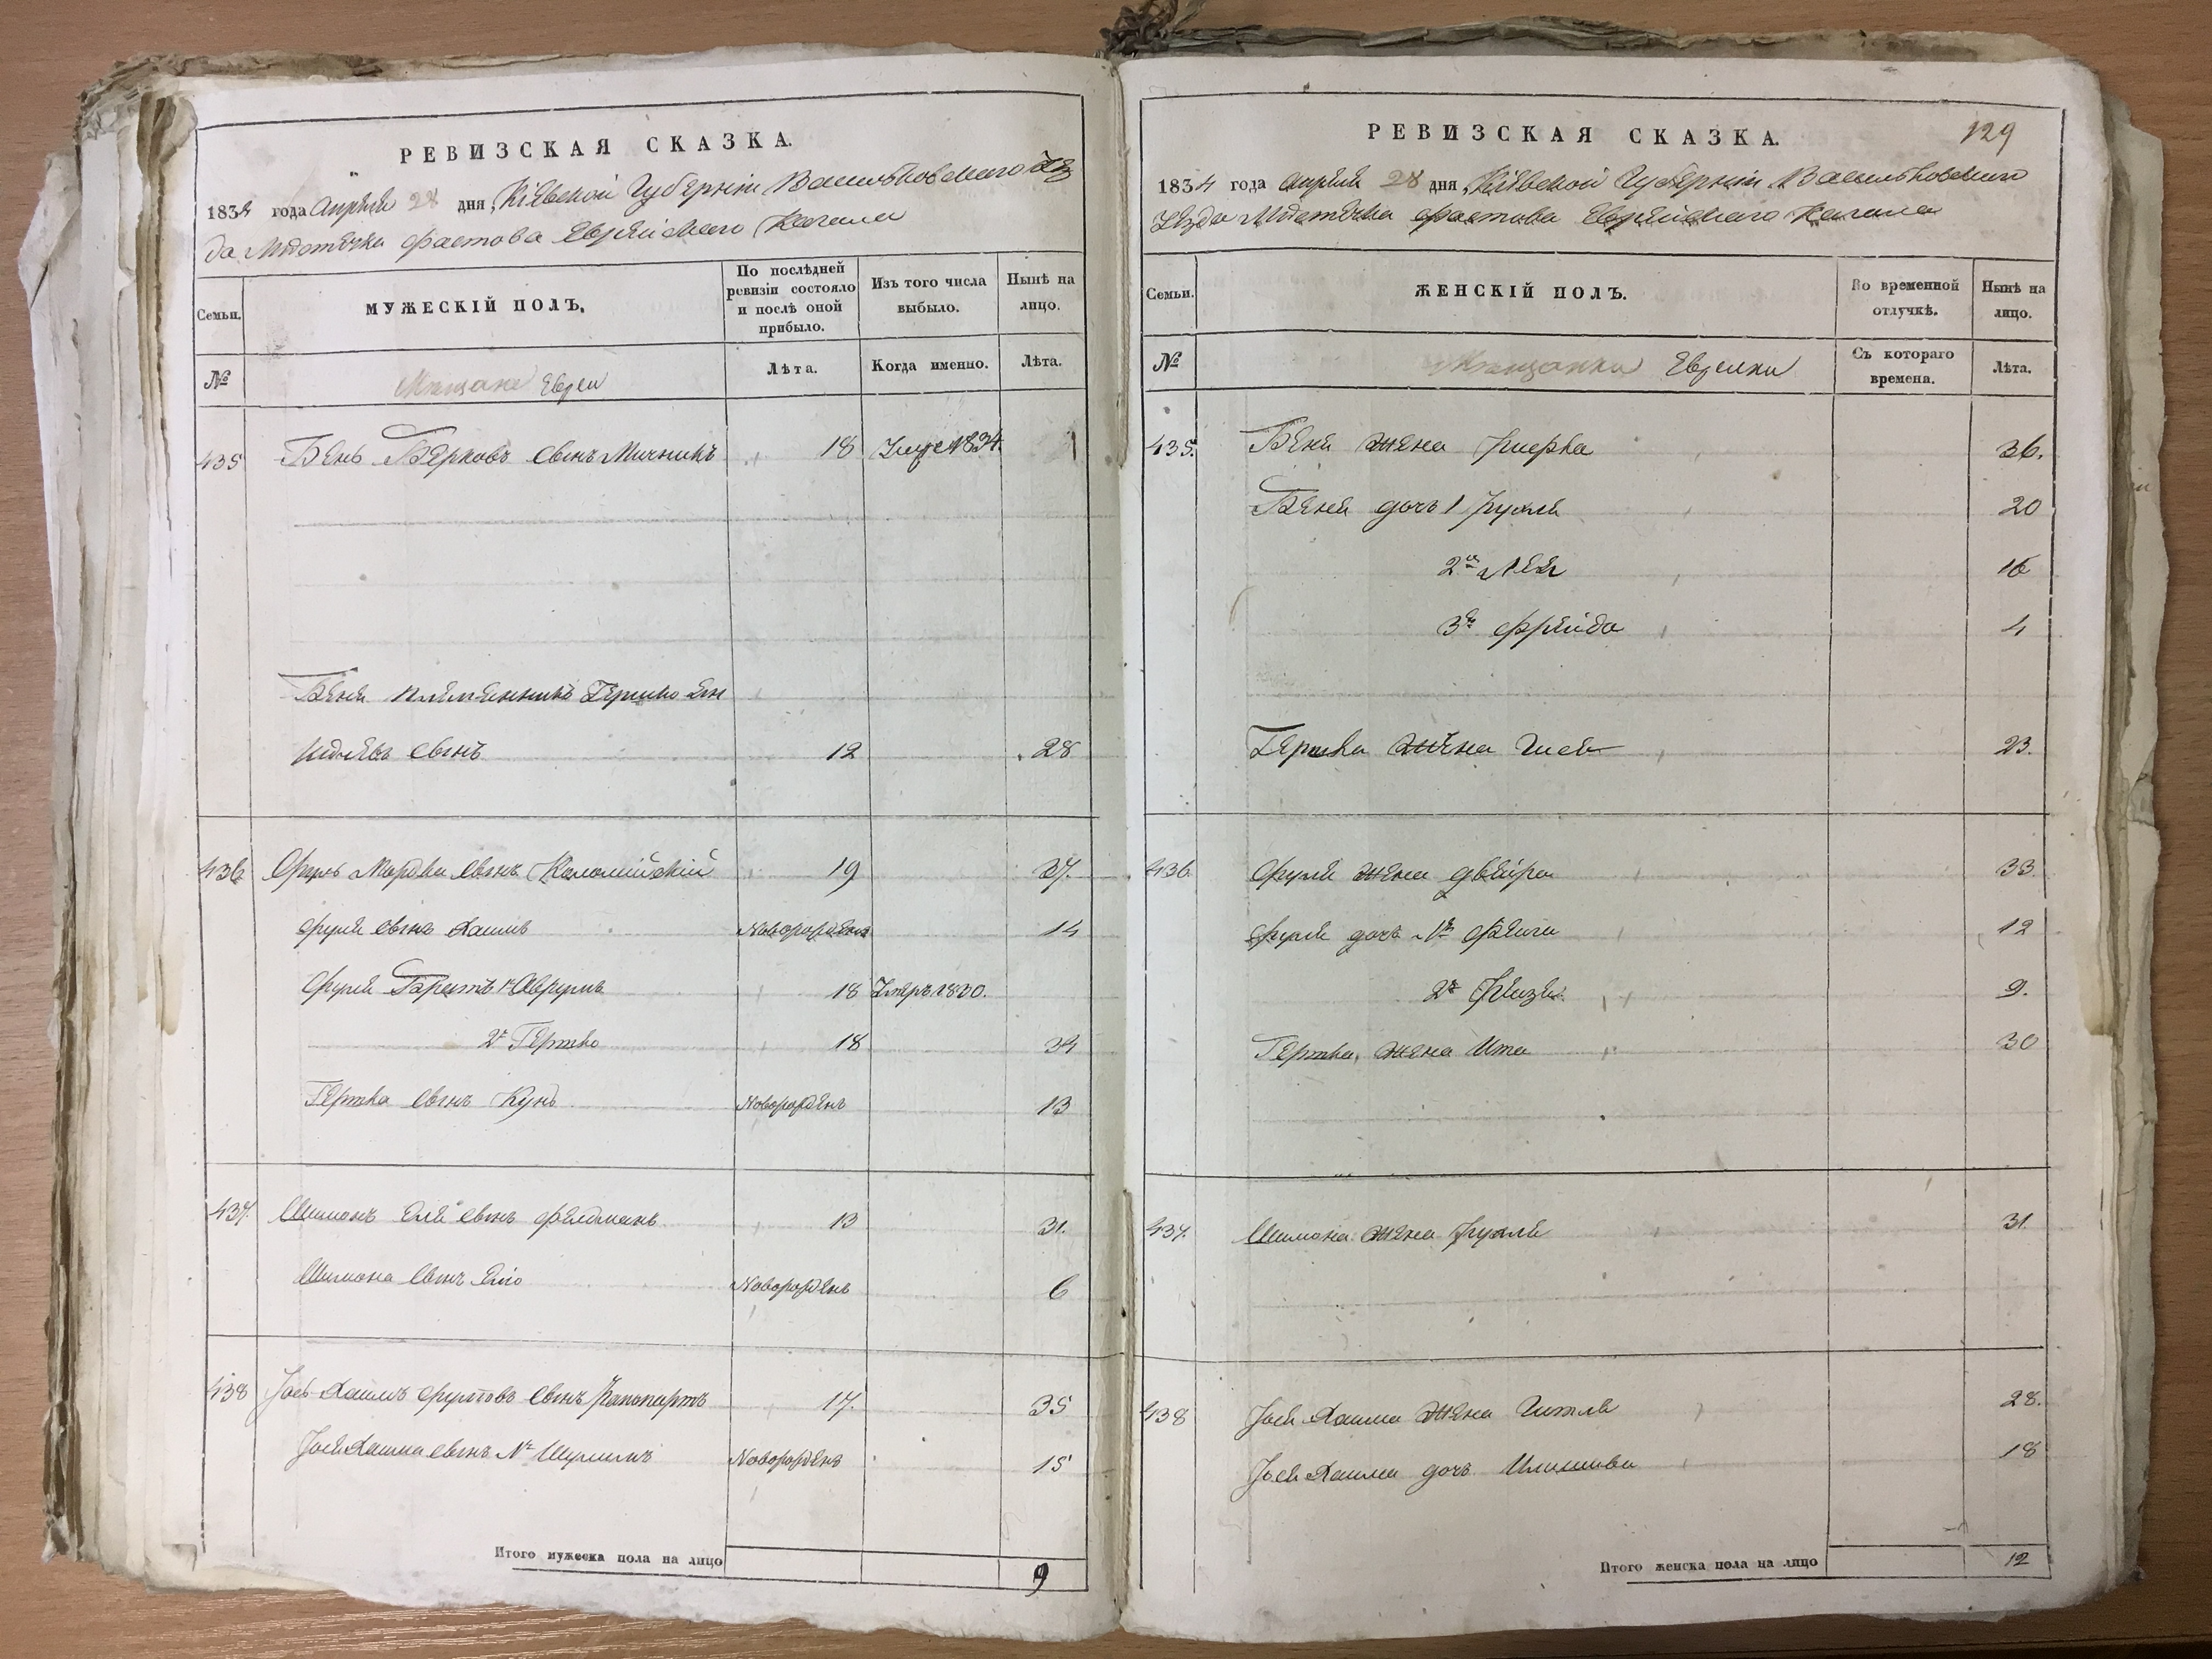 РЕВИЗСКАЯ СКАЗКА.
1834 года Апреля 28 дня, Кіевской Губерніи Васильковского Уѣз
да Мѣстечка Фастова Еврейского Кагала
Семьи.
МУЖЕСКІЙ ПОЛЪ.
По послѣдней ревизіи состояло и послѣ оной прибыло.
Изъ того числа выбыло.
Нынѣ на лицо.
№
Мещане Евреи
Лѣта.
Когда именно.
Лѣта.
435 Бень Берковъ сынъ Мичникъ 18 1834.
Беня племянникъ Гершко
сынъ 12 28
436 Фуль Мордка сынъ Коломійскій 19 37.
Фуля сынъ Хаимъ Новорожденъ 14
Фуля Братъ 1й Аврумъ 18 Умеръ 1820.
2й Гершко 18 34
Гершка сынъ Кунь Новорожденъ 13
437. Шимонъ Еля сынъ Фелдманъ 13 31.
Шимона сынъ Еліо Новорожденъ 6
438 Іось Хаимъ сынъ Рапопортъ 17. 35
Іося Хаима сынъ Шулимъ Новорожденъ 15
Итого мужеска пола на лицо 9
РЕВИЗСКАЯ СКАЗКА.
129
1834 года Апреля 28 дня, Кіевской Губерніи Васильковского
Уѣзда Мѣстечка Фастова Еврейскаго Кагала
Семьи.
ЖЕНСКІЙ ПОЛЪ.
Во временной отлучкѣ.
Нынѣ на лицо.
№
Мещанки Еврейки
Съ котораго времена.
Лѣта.
435. Беня жена Ривка 36.
Беня дочь 1 Рухля 20
2я Лея 16
3я Фрейда 4
Гершка жена 23.
436. Фуля жена Двейра 33.
Фуля дочь 1я Фейга 12
2я Рейзя 9.
Гершка жена Ита 30
437. Шимона жена Рухля 31
438 Іося Хаима жена Гитля 28.
Іося Хаима дочь 18
Итого женска пола на лицо 12